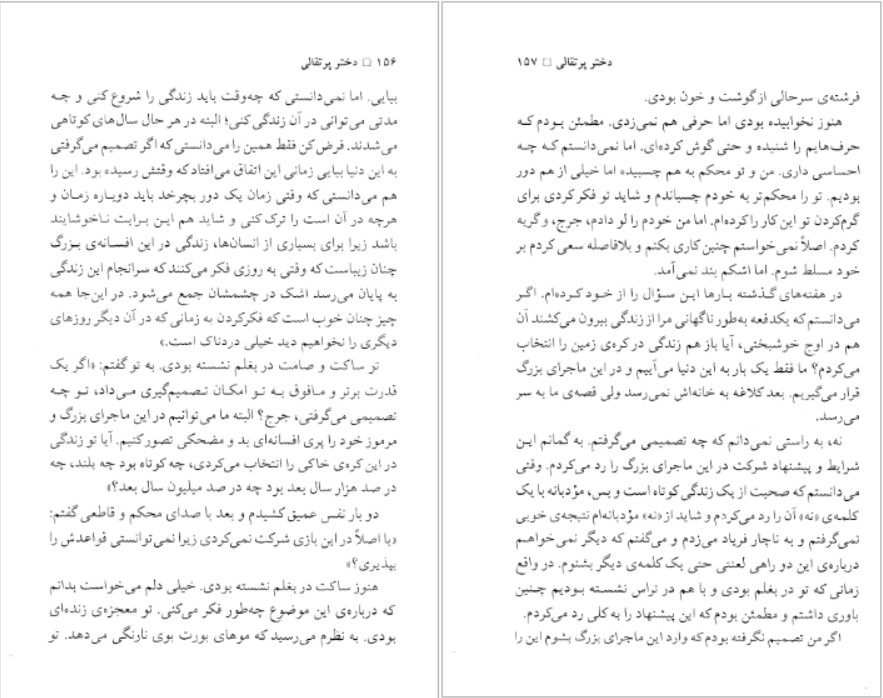 ۱۵۶ □ دختر پرتقالی
بیایی. اما نمی‌دانستی که چه‌وقت باید زندگی را شروع کنی و چه
مدتی می‌توانی در آن زندگی کنی؛ البته در هر حال سال‌های کوتاهی
می‌شدند. فرض‌کن فقط همین را می‌دانستی که اگر تصمیم می‌گرفتی
به این دنیا بیایی زمانی این اتفاق می‌افتاد که وقتش رسیده بود. این را
هم می‌دانستی که وقتی زمان یک دور بچرخد باید دوباره زمان و
هرچه در آن است را ترک کنی و شاید هم این برایت ناخوشایند
باشد زیرا برای بسیاری از انسان‌ها، زندگی در این افسانه‌ی بزرگ
چنان زیباست که وقتی به روزی فکر می‌کنند که سرانجام این زندگی
به پایان می‌رسد اشک در چشمشان جمع می‌شود. در این‌جا همه
چیز چنان خوب است که فکرکردن به زمانی که در آن دیگر روزهای
دیگری را نخواهیم دید خیلی دردناک است.»
تو ساکت و صامت در بغلم نشسته بودی. به تو گفتم: «اگر یک
قدرت برتر و مافوق به تو امکان تصمیم‌گیری می‌داد، تو چه
تصمیمی می‌گرفتی، جرج؟ البته ما می‌توانیم در این ماجرای بزرگ و
مرموز خود را پری افسانه‌ای بد و مضحکی تصور کنیم. آیا تو زندگی
در این کره‌ی خاکی را انتخاب می‌کردی، چه کوتاه بود چه بلند، چه
در صد هزار سال بعد بود چه در صد میلیون سال بعد؟»
دو بار نفس عمیق کشیدم و بعد با صدای محکم و قاطعی گفتم:
«یا اصلاً در این بازی شرکت نمی‌کردی زیرا نمی‌توانستی قواعدش را
بپذیری؟»
هنوز ساکت در بغلم نشسته بودی. خیلی دلم می‌خواست بدانم
که درباره‌ی این موضوع چه‌طور فکر می‌کنی. تو معجزه‌ی زنده‌ای
بودی. به نظرم می‌رسید که موهای بورت بوی نارنگی می‌دهد. تو
دختر پرتقالی □ ۱۵۷
فرشته‌ی سرحالی از گوشت و خون بودی.
هنوز نخوابیده بودی اما حرفی هم نمی‌زدی. مطمئن بودم که
حرف‌هایم را شنیده و حتی گوش کرده‌ای. اما نمی‌دانستم که چه
احساسی داری. من و تو محکم به هم چسبیده اما خیلی از هم دور
بودیم. تو را محکم‌تر به خودم چسباندم و شاید تو فکر کردی برای
گرم‌کردن تو این کار را کرده‌ام. اما من خودم را لو دادم، جرج، و گریه
کردم. اصلاً نمی‌خواستم چنین کاری بکنم و بلافاصله سعی کردم بر
خود مسلط شوم. اما اشکم بند نمی‌آمد.
در هفته‌های گذشته بارها این سؤال را از خود کرده‌ام. اگر
می‌دانستم که یکدفعه به‌طور ناگهانی مرا از زندگی بیرون می‌کشند آن
هم در اوج خوشبختی، آیا باز هم زندگی در کره‌ی زمین را انتخاب
می‌کردم؟ ما فقط یک بار به این دنیا می‌آییم و در این ماجرای بزرگ
قرار می‌گیریم. بعد کلاغه به خانه‌اش نمی‌رسد ولی قصه‌ی ما به سر
می‌رسد.
نه، به راستی نمی‌دانم که چه تصمیمی می‌گرفتم. به گمانم این
شرایط و پیشنهاد شرکت در این ماجرای بزرگ را رد می‌کردم. وقتی
می‌دانستم که صحبت از یک زندگی کوتاه است و بس، مؤدبانه با یک
کلمه‌ی «نه» آن را رد می‌کردم و شاید از «نه» مؤدبانه‌ام نتیجه‌ی خوبی
نمی‌گرفتم و به ناچار فریاد می‌زدم و می‌گفتم که دیگر نمی‌خواهم
درباره‌ی این دو راهی لعنتی حتی یک کلمه‌ی دیگر بشنوم. در واقع
زمانی که تو در بغلم بودی و با هم در تراس نشسته بودیم چنین
باوری داشتم و مطمئن بودم که این پیشنهاد را به کلی رد می‌کردم.
اگر من تصمیم نگرفته بودم که وارد این ماجرای بزرگ بشوم این را